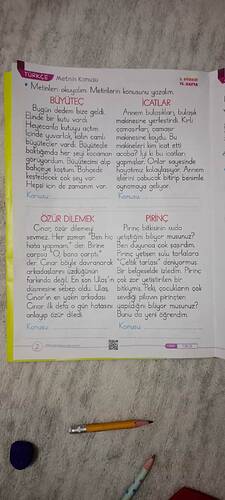 TÜRKÇE
Metnin Konusu
Metinleri okuyalım. Metinlerin konusunu yazalım.
BÜYÜTEÇ
Bugün dedem bize geldi.
Elinde bir kutu vardı.
Heyecanla kutuyu açtım.
İçinde yuvarlak, kalın camlı
büyüteçler vardı. Büyüteçle
baktığımda her şeyi kocaman
görüyordum. Büyütecimi alıp
bahçeye koştum. Bahçede
keşfedecek çok şey var.
Hepsi için de zamanım var.
Konusu:
İCATLAR
Annem bulaşıkları, bulaşık
makinesine yerleştirdi. Kirli
çamaşırları, çamaşır
makinesine koydu. Bu
makineleri kim icat etti
acaba? İyi ki bu icatları
yapmışlar. Onlar sayesinde
hayatımız kolaylaşıyor. Annem
işlerini çabucak bitirip benimle
oynamaya geliyor.
Konusu:
ÖZÜR DİLEMEK
Çınar, özür dilemeyi
sevmez. Her zaman "Ben hiç
hata yapmam." der. Birine
çarpsa "O, bana çarptı."
der. Çınar böyle davranarak
arkadaşlarını üzdüğünün
farkında değil. En son Ulaş'ın
düşmesine sebep oldu. Ulaş,
Çınar'ın en yakın arkadaşı.
Çınar ilk defa o gün hatasını
anlayıp özür diledi.
Konusu:
PİRİNÇ
Pirinç bitkisinin suda
yetiştiğini biliyor musunuz?
Ben duyunca çok şaşırdım.
Pirinç yetişen sulu tarlalara
"Çeltik tarlası" deniyormuş.
Bir belgeselde izledim. Pirinç
çok zor yetiştirilen bir
bitkiymiş. Peki, çocukların çok
sevdiği pilavın pirinçten
yapıldığını biliyor musunuz?
Bunu da yeni öğrendim.
Konusu:
2